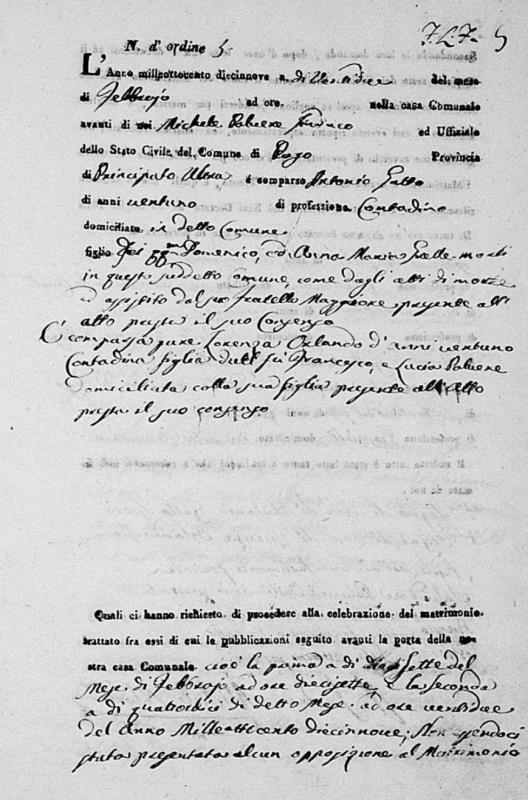 N. d' ordine 5
L' Anno millottocento diecinove a di Ventidue del mese
di Febbrajo ad ore. nella casa Comunale
avanti di noi Michele Sindaco ed Uffiziale
dello Stato Civile del Comune di Provincia
di Principato Ultra è comparso Antonio Gallo
di anni ventuno di professione Contadino
domiciliato in detto Comune
figlio Domenico, ed Anna Maria morti
in questo suddetto comune, come dagli atti di morte
ed assistito dal suo Fratello Maggiore presente all'
atto presta il suo Consenso
È comparsa pure Lorenza Orlando d'anni ventuno
Contadina figlia del fu Francesco, e Lucia
domiciliata colla sua figlia presente all'Atto
presta il suo consenso
Quali ci hanno richiesto di procedere alla celebrazione del matrimonio
trattato fra essi di cui le pubblicazioni seguito avanti la porta della no-
stra casa Comunale cioè la prima a di sette del
Mese di Febbrajo ad ore diecisette, e la seconda
a di quattordici di detto Mese ad ore ventidue
del Anno Milleottocento diecinnove; Non essendoci
stata presentata alcun opposizione al Matrimonio